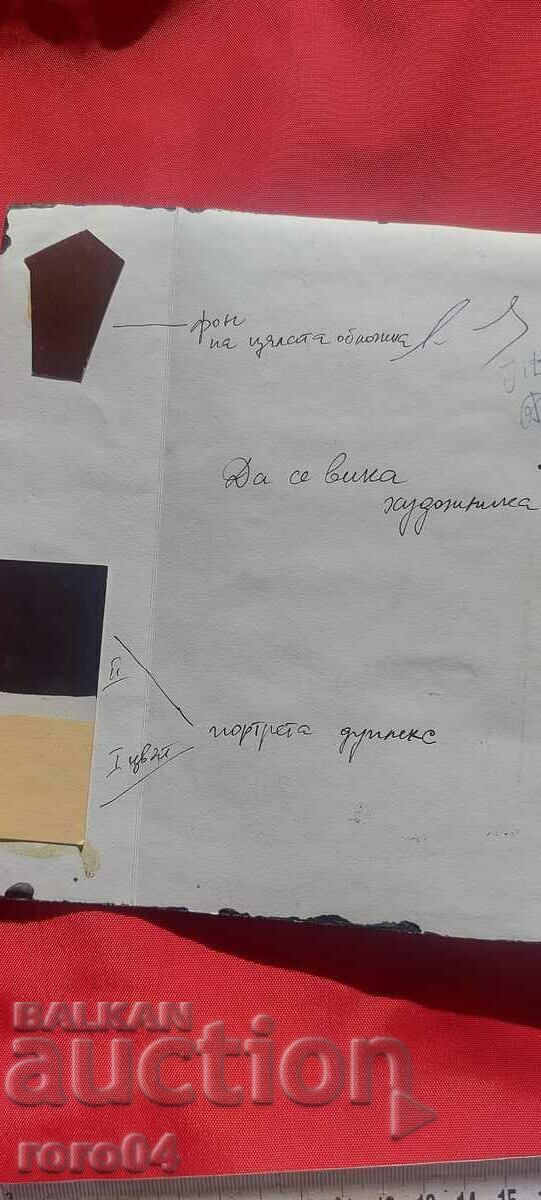 фон
на цялата обложка
Да се вика
художника
II
I цвят
портрета дуплекс
BALKAN
auction
roro04
13 14 15